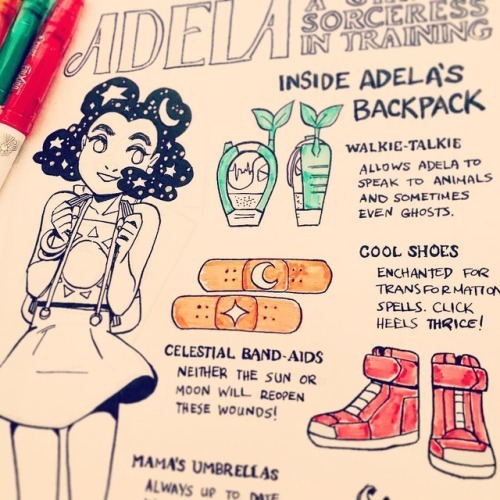 ADELA
SORCERESS
IN TRAINING
INSIDE ADELA'S
BACKPACK
WALKIE-TALKIE
ALLOWS ADELA TO
SPEAK TO ANIMALS
AND SOMETIMES
EVEN GHOSTS.
COOL SHOES
ENCHANTED FOR
TRANSFORMATION
SPELLS. CLICK
HEELS THRICE!
CELESTIAL BAND-AIDS
NEITHER THE SUN OR
MOON WILL REOPEN
THESE WOUNDS!
MAMA'S UMBRELLAS
ALWAYS UP TO DATE